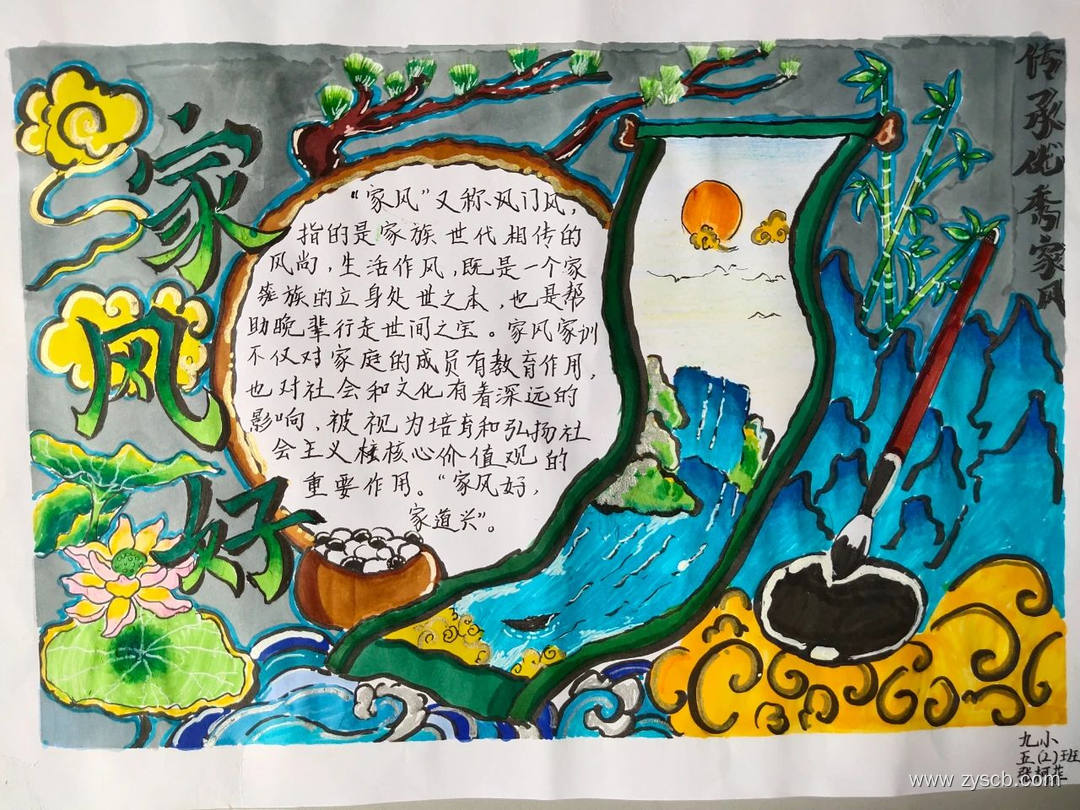 家风好
传承优秀家风
“家风”又称风门风，
指的是家族世代相传的
风尚，生活作风，既是一个家
族的立身处世之本，也是帮
助晚辈行走世间之宝。家风家训
不仅对家庭的成员有教育作用，
也对社会和文化有着深远的
影响，被视为培育和弘扬社
会主义核心价值观的
重要作用。“家风好，
家道兴”。
九小
五(2)班
www.zyscb.com